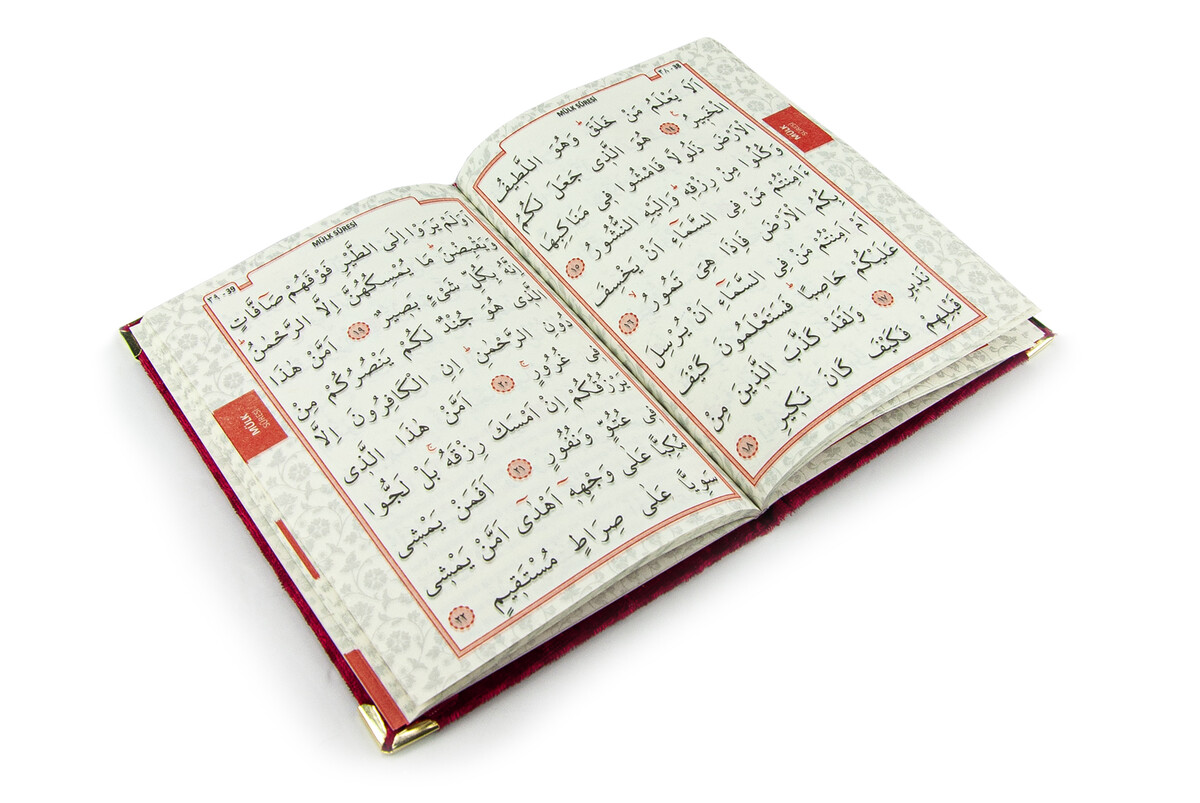 ٣٨ - 38
MÜLK SÛRESİ
MÜLK
SÛRESİ
اَلَا يَعْلَمُ مَنْ خَلَقَۜ وَهُوَ اللَّط۪يفُ
الْخَب۪يرُ۟ ﴿١٤﴾ هُوَ الَّذ۪ي جَعَلَ لَكُمُ
الْاَرْضَ ذَلُولًا فَامْشُوا ف۪ي مَنَاكِبِهَا
وَكُلُوا مِنْ رِزْقِه۪ۜ وَاِلَيْهِ النُّشُورُ ﴿١٥﴾
ءَاَمِنْتُمْ مَنْ فِي السَّمَٓاءِ اَنْ يَخْسِفَ
بِكُمُ الْاَرْضَ فَاِذَا هِيَ تَمُورُۙ ﴿١٦﴾
اَمْ اَمِنْتُمْ مَنْ فِي السَّمَٓاءِ اَنْ يُرْسِلَ
عَلَيْكُمْ حَاصِباًۜ فَسَتَعْلَمُونَ كَيْفَ
نَذ۪يرِ ﴿١٧﴾ وَلَقَدْ كَذَّبَ الَّذ۪ينَ مِنْ
قَبْلِهِمْ فَكَيْفَ كَانَ نَك۪يرِ ﴿١٨﴾
٣٩ - 39
MÜLK SÛRESİ
MÜLK
SÛRESİ
اَوَلَمْ يَرَوْا اِلَى الطَّيْرِ فَوْقَهُمْ صَٓافَّاتٍ
وَيَقْبِضْنَۜ مَا يُمْسِكُهُنَّ اِلَّا الرَّحْمٰنُۜ
اِنَّهُ بِكُلِّ شَيْءٍ بَص۪يرٌ ﴿١٩﴾ اَمَّنْ هٰذَا
الَّذ۪ي هُوَ جُنْدٌ لَكُمْ يَنْصُرُكُمْ مِنْ
دُونِ الرَّحْمٰنِۜ اِنِ الْكَافِرُونَ اِلَّا
ف۪ي غُرُورٍۚ ﴿٢٠﴾ اَمَّنْ هٰذَا الَّذ۪ي
يَرْزُقُكُمْ اِنْ اَمْسَكَ رِزْقَهُۚ بَلْ لَجُّوا
ف۪ي عُتُوٍّ وَنُفُورٍ ﴿٢١﴾ اَفَمَنْ يَمْش۪ي
مُكِباًّ عَلٰى وَجْهِه۪ٓ اَهْدٰٓى اَمَّنْ يَمْش۪ي
سَوِياًّ عَلٰى صِرَاطٍ مُسْتَق۪يمٍ ﴿٢٢﴾